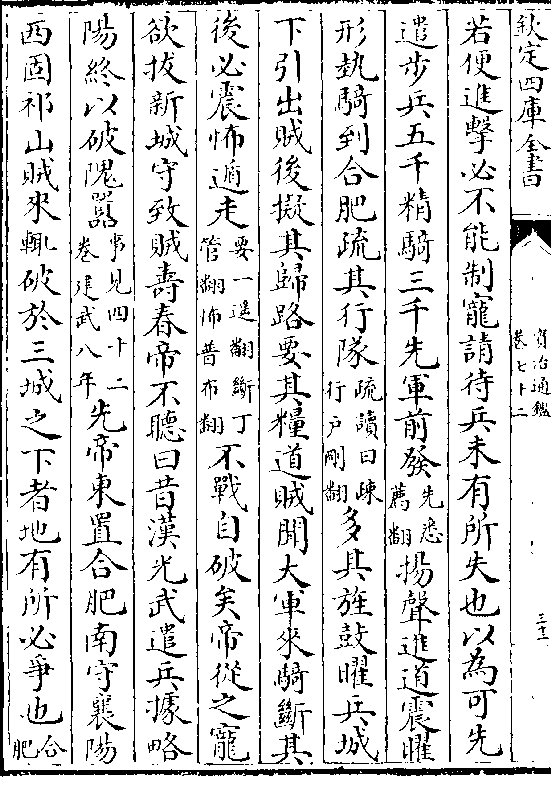 欽定四庫全書
資治通鑑
卷七十二
三十二
若便進擊必不能制寵請待兵未有所失也以為可先
遣步兵五千精騎三千先軍前發先悉薦翻揚聲進道震曜
形埶騎到合肥疏其行隊疏讀曰疎行戶剛翻多其旌鼓曜兵城
下引出賊後擬其歸路要其糧道賊聞大軍來騎斷其
後必震怖遁走要一遥翻斷丁管翻怖普布翻不戰自破矣帝從之寵
欲拔新城守致賊壽春帝不聽曰昔漢光武遣兵據略
陽終以破隗囂事見四十二卷建武八年先帝東置合肥南守襄陽
西固祁山賊來輒破於三城之下者地有所必爭也合肥